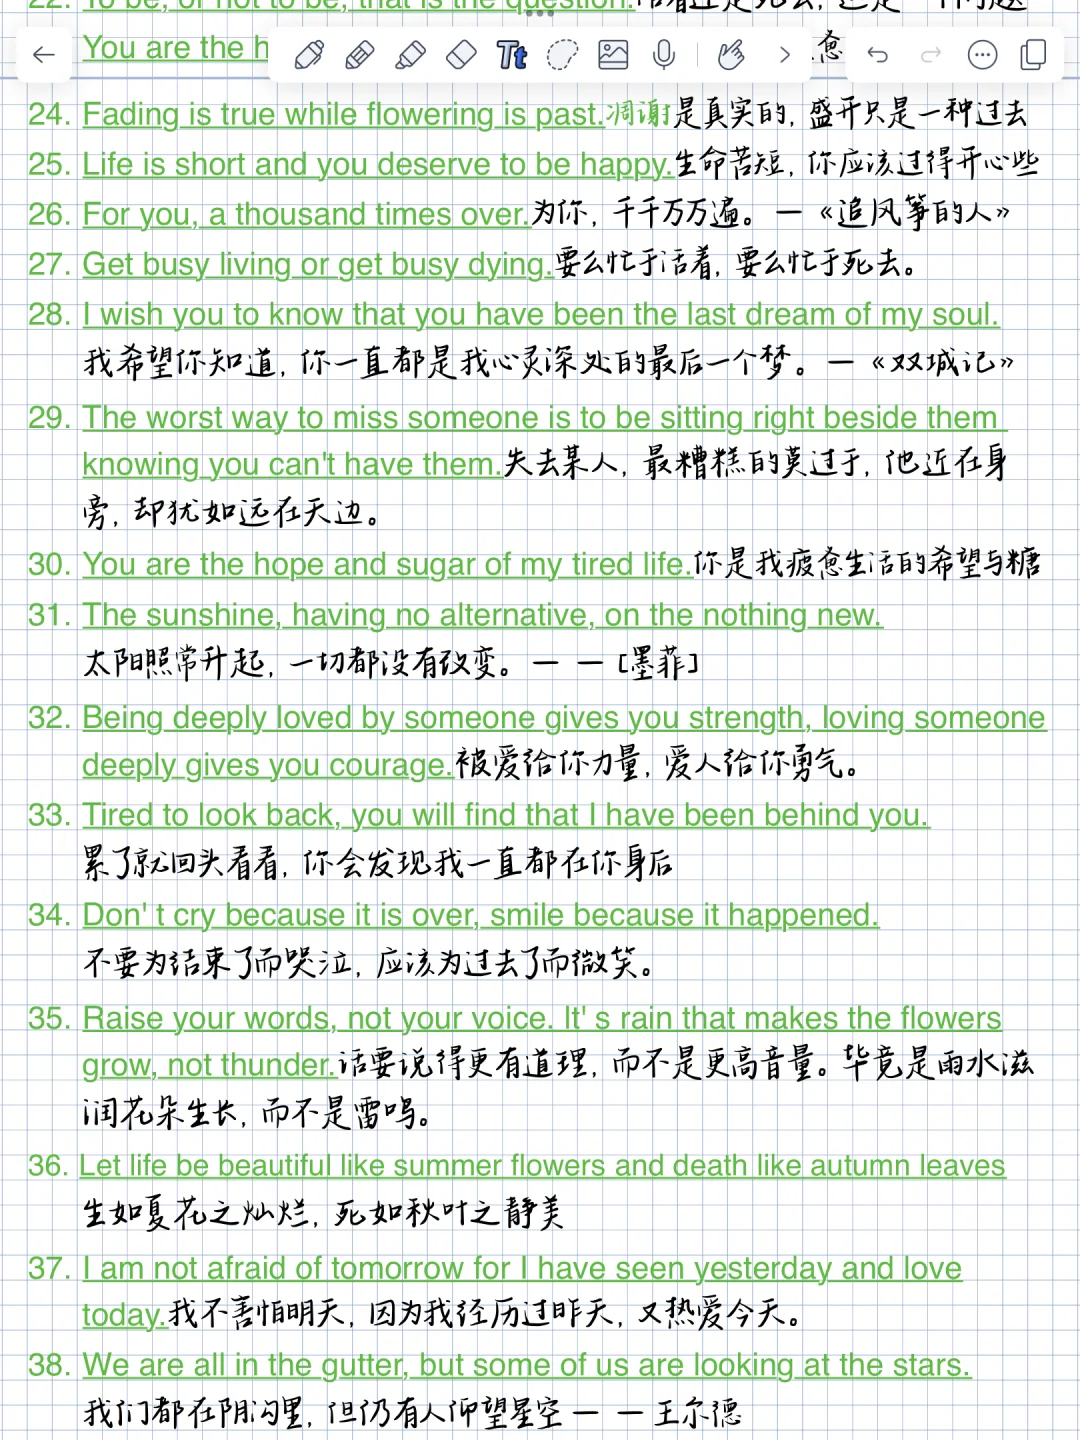 22. To be, or not to be, that is the question.
You are the h
24. Fading is true while flowering is past.凋谢是真实的, 盛开只是一种过去
25. Life is short and you deserve to be happy.生命苦短, 你应该过得开心些
26. For you, a thousand times over.为你, 千千万万遍。—《追风筝的人》
27. Get busy living or get busy dying.要么忙于活着, 要么忙于死去。
28. I wish you to know that you have been the last dream of my soul.
我希望你知道, 你一直都是我心灵深处的最后一个梦。—《双城记》
29. The worst way to miss someone is to be sitting right beside them
knowing you can't have them.失去某人, 最糟糕的莫过于, 他近在身
旁, 却犹如远在天边。
30. You are the hope and sugar of my tired life.你是我疲惫生活的希望与糖
31. The sunshine, having no alternative, on the nothing new.
太阳照常升起, 一切都没有改变。— — [墨菲]
32. Being deeply loved by someone gives you strength, loving someone
deeply gives you courage.被爱给你力量, 爱人给你勇气。
33. Tired to look back, you will find that I have been behind you.
累了就回头看看, 你会发现我一直都在你身后
34. Don' t cry because it is over, smile because it happened.
不要为结束了而哭泣, 应该为过去了而微笑。
35. Raise your words, not your voice. It' s rain that makes the flowers
grow, not thunder.话要说得更有道理, 而不是更高音量。毕竟是雨水滋
润花朵生长, 而不是雷鸣。
36. Let life be beautiful like summer flowers and death like autumn leaves
生如夏花之灿烂, 死如秋叶之静美
37. I am not afraid of tomorrow for I have seen yesterday and love
today.我不害怕明天, 因为我经历过昨天, 又热爱今天。
38. We are all in the gutter, but some of us are looking at the stars.
我们都在阴沟里, 但仍有人仰望星空— — 王尔德